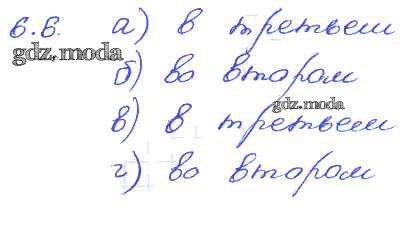 6.6. а) в третьем
gdz.moda
б) во втором
gdz.moda
в) в третьем
г) во втором